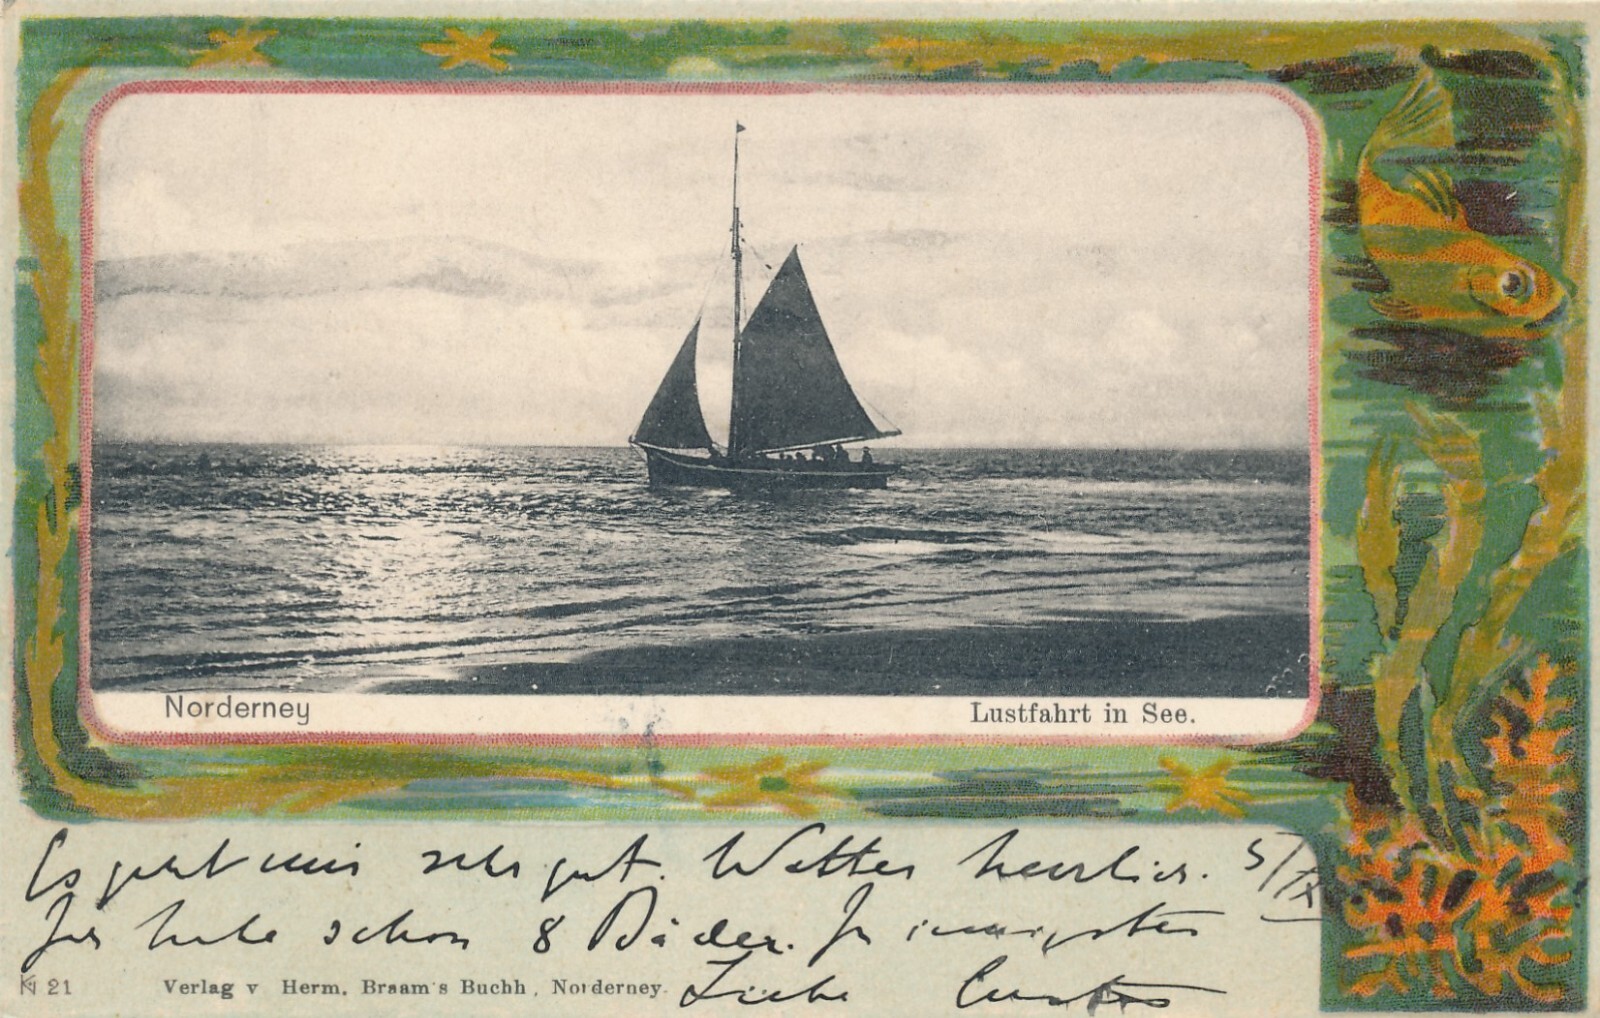 Norderney
Lustfahrt in See.
Es geht mir sehr gut. Wetter herrlich. 5/IX
Ich habe schon 8 Bäder. In innigster
Liebe
21 Verlag v Herm. Braam's Buchh, Norderney.